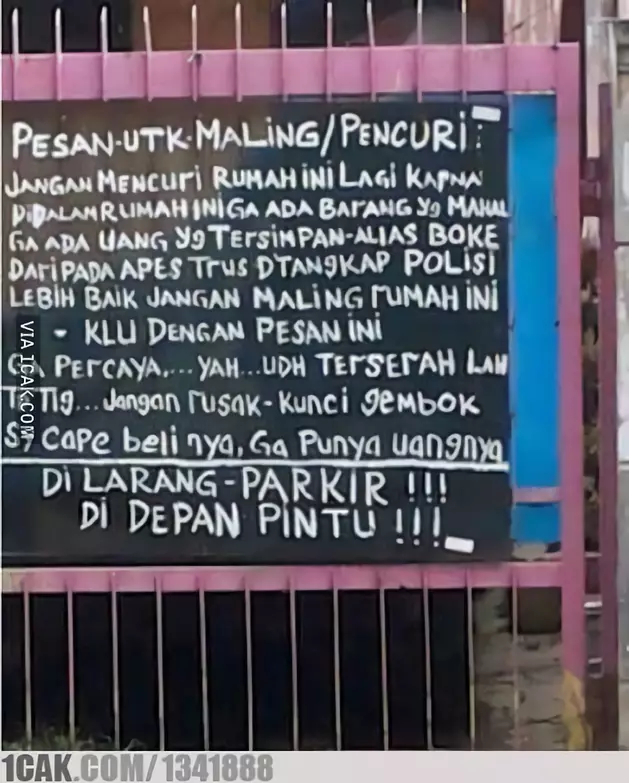 PESAN-UTK-MALING/PENCURI:
JANGAN MENCURI RUMAH INI LAGI KARNA
DIDALAM RUMAH INI GA ADA BARANG YG MAHAL
GA ADA UANG YG TERSIMPAN-ALIAS BOKE
DARIPADA APES TRUS DTANGKAP POLISI
LEBIH BAIK JANGAN MALING RUMAH INI
- KLU DENGAN PESAN INI
GA PERCAYA.... YAH...UDH TERSERAH LAH
...Jangan rusak-Kunci gembok
Sy Cape beli nya, Ga Punya uangnya
Di LARANG-PARKIR !!!
Di DEPAN PINTU !!!
VIA 1CAK.COM
1CAK.COM/1341888